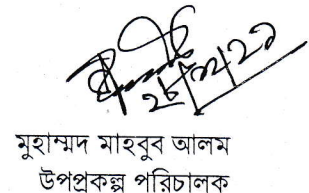 ২৮/১২/২১
মুহাম্মদ মাহবুব আলম
উপপ্রকল্প পরিচালক